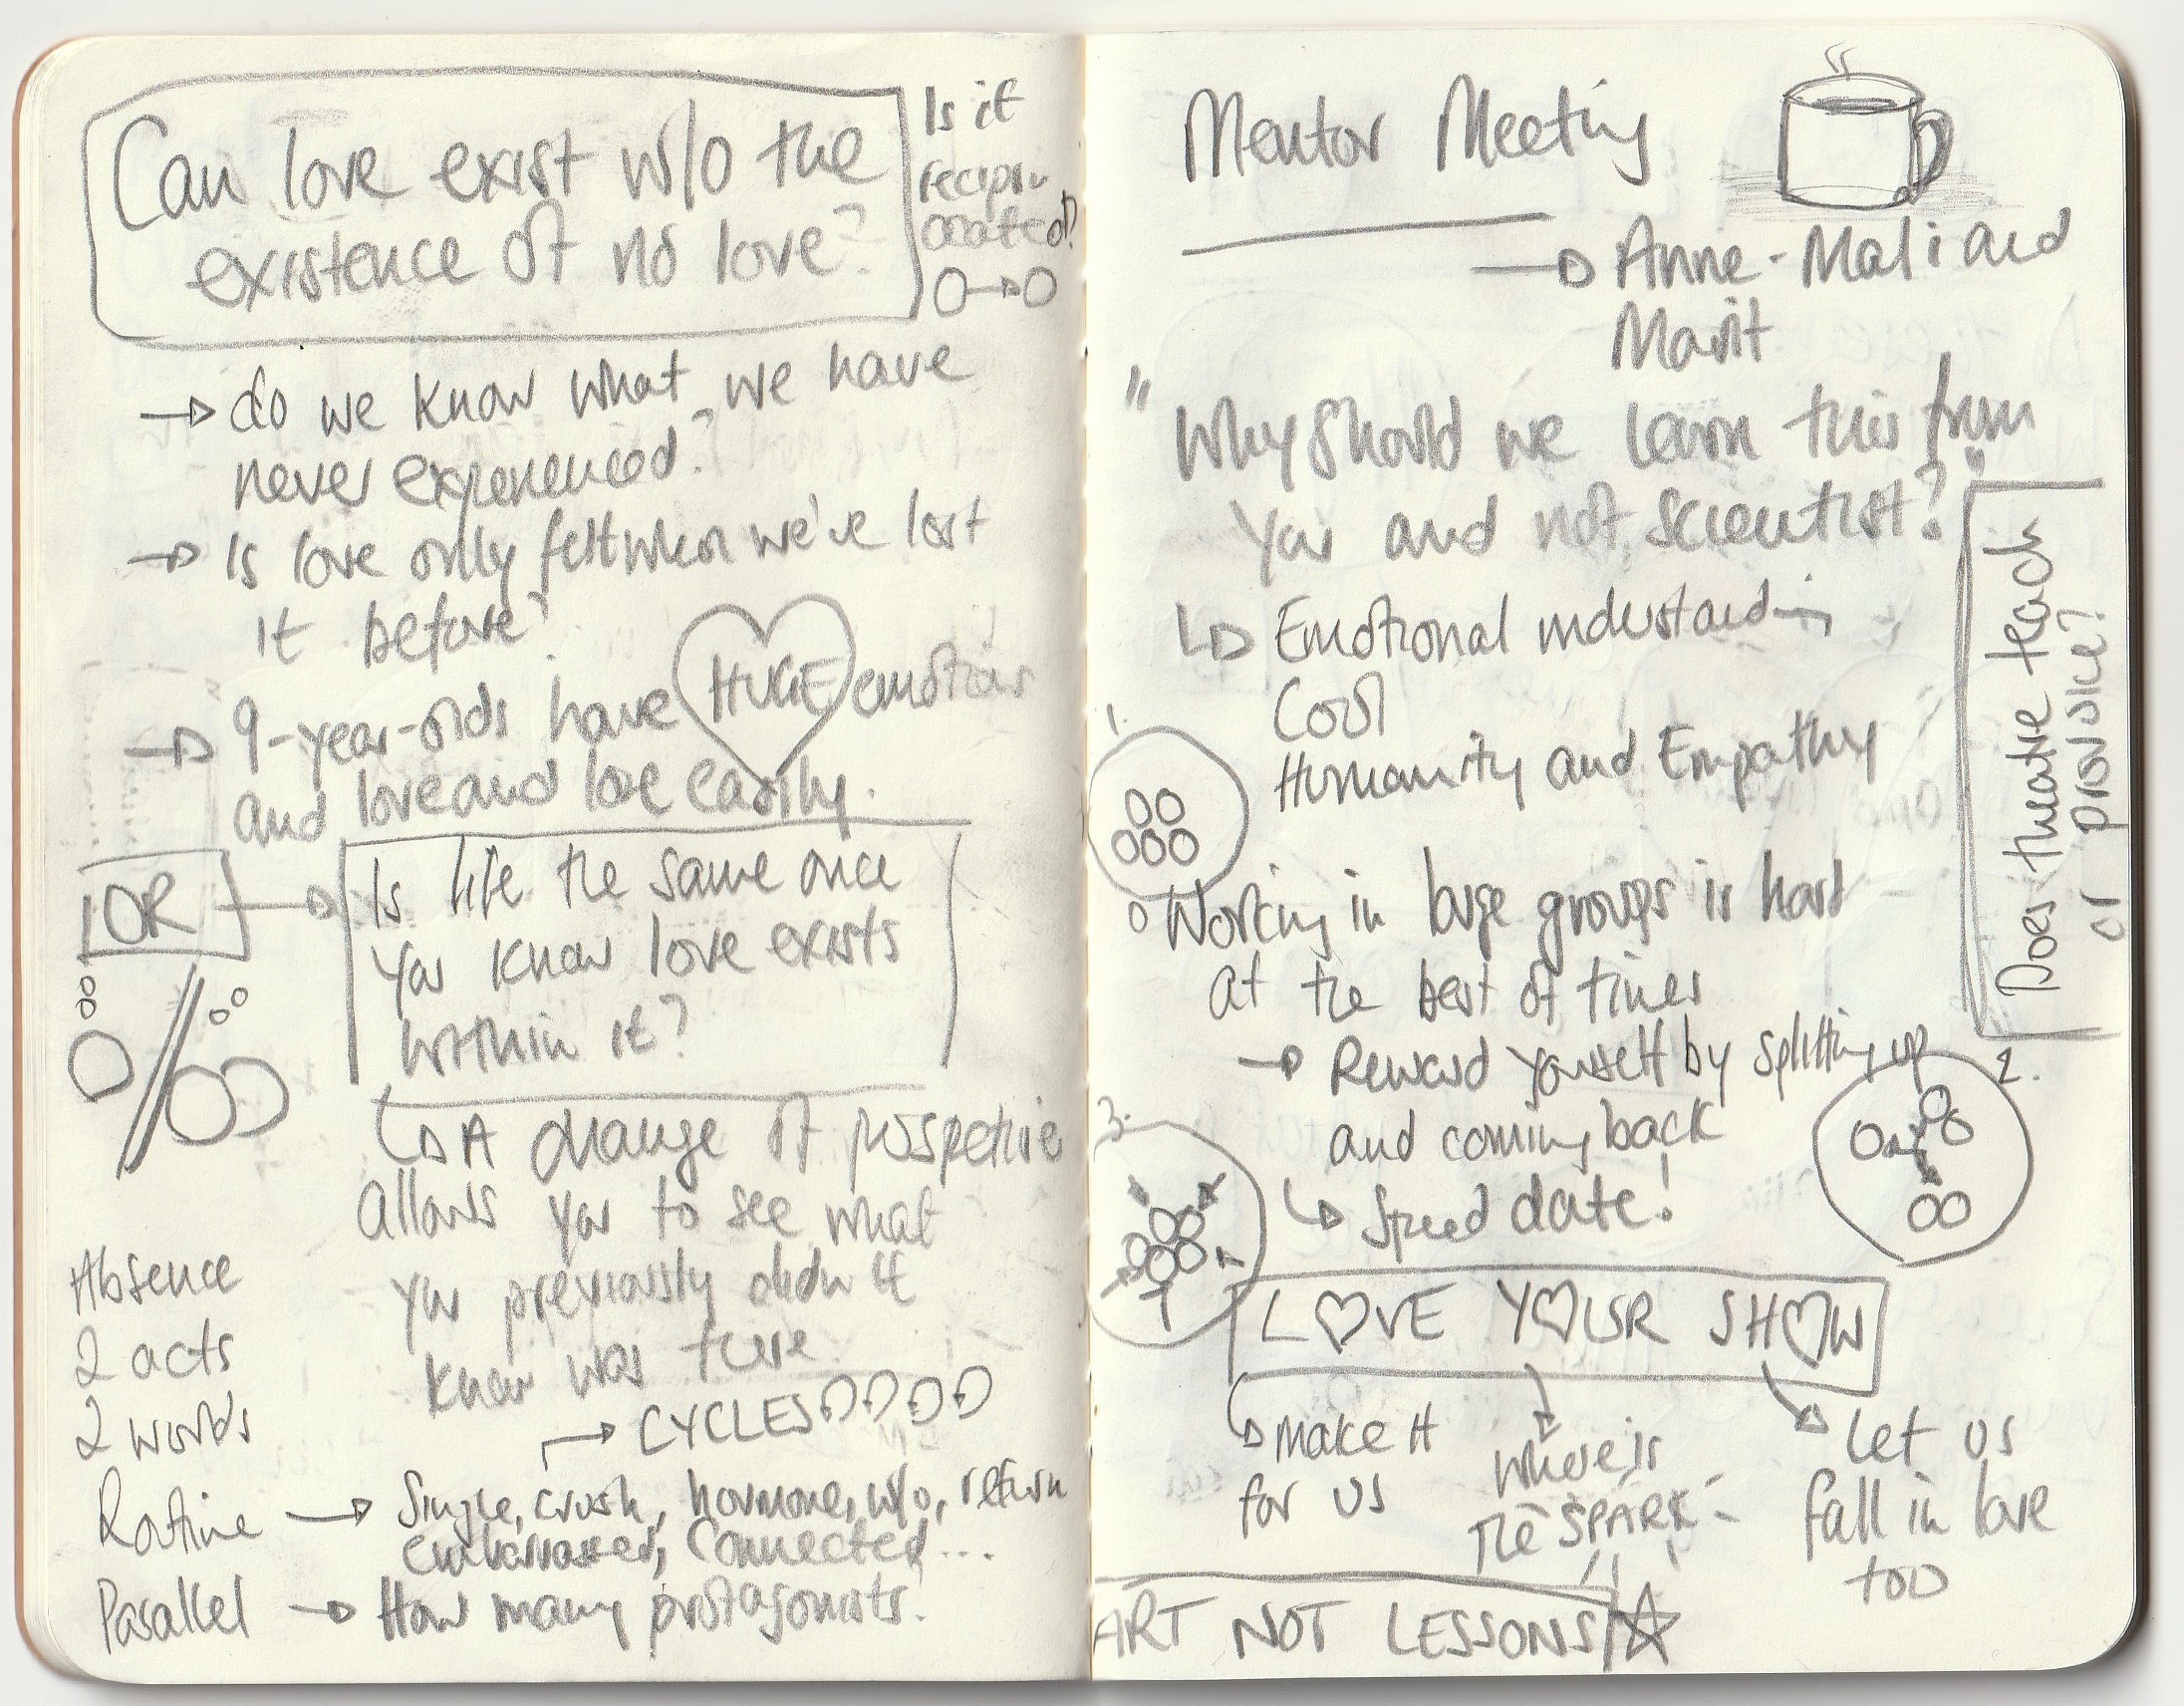 Can love exist w/o the
existence of no love?
Is it
recipro
cated?
→ do we know what we have
never experienced?
→ Is love only felt when we've lost
it before?
→ 9-year-olds have HUGE emotions
and love and love easily.
OR →
Is life the same once
you know love exists
within it?
↳ A change of perspective
allows you to see what
you previously didn't
know was there
Absence
2 acts
2 words
→ CYCLES
Routine → Single, crush, hormone, w/o, return
embarrassed, connected...
Parallel → How many protagonists?
Mentor Meeting
→ Anne-Mali and
Marit
"Why should we learn this from
you and not scientist?"
↳ Emotional understanding
Cool
Humanity and Empathy
Does theatre teach
or provoke?
1.
Working in large groups is hard
at the best of times
→ Reward yourself by splitting up
and coming back
↳ Speed date!
2.
3.
LOVE YOUR SHOW
→ make it
for us
→ where is
the SPARK
→ Let us
fall in love
too
ART NOT LESSONS